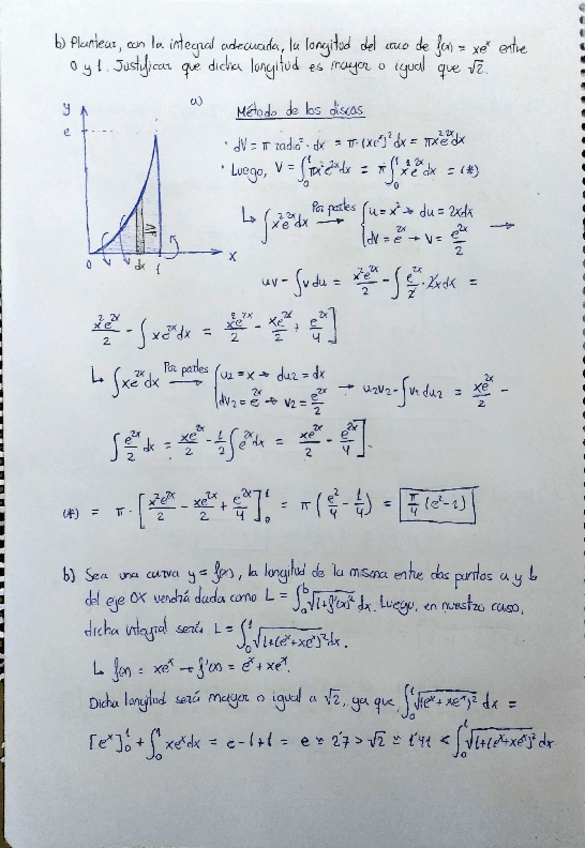 b) Plantear, con la integral adecuada, la longitud del arco de f(x) = xeˣ entre
0 y 1. Justificar que dicha longitud es mayor o igual que √2.
a) Método de los discos
y
e
0 dx 1 x
· dV = π radio² · dx = π·(xeˣ)² dx = πx²e²ˣdx
· Luego, V = ∫₀¹ πx²e²ˣdx = π∫₀¹ x²e²ˣdx = (*)
↳ ∫x²e²ˣdx Por partes → { u = x² → du = 2xdx
dV = e²ˣ → V = e²ˣ/2 →
uv - ∫vdu = x²e²ˣ/2 - ∫ e²ˣ/2 · 2xdx =
x²e²ˣ/2 - ∫xe²ˣdx = x²e²ˣ/2 - xe²ˣ/2 + e²ˣ/4 ]
↳ ∫xe²ˣdx Por partes → { u₂ = x → du₂ = dx
dv₂ = e²ˣ → v₂ = e²ˣ/2 → u₂v₂ - ∫v₂du₂ = xe²ˣ/2 -
∫ e²ˣ/2 dx = xe²ˣ/2 - 1/2 ∫e²ˣdx = xe²ˣ/2 - e²ˣ/4 ].
(*) = π · [ x²e²ˣ/2 - xe²ˣ/2 + e²ˣ/4 ]₀¹ = π (e²/4 - 1/4) = π/4 (e²-1)
b) Sea una curva y = f(x), la longitud de la misma entre dos puntos a y b
del eje OX vendrá dada como L = ∫ₐᵇ √(1+f'(x)²) dx. Luego, en nuestro caso,
dicha integral será L = ∫₀¹ √(1+(eˣ+xeˣ)²) dx.
↳ f(x) = xeˣ → f'(x) = eˣ + xeˣ.
Dicha longitud será mayor o igual a √2, ya que ∫₀¹ √((eˣ + xeˣ)²) dx =
[eˣ]₀¹ + ∫₀¹ xeˣdx = e - 1 + 1 = e ≃ 2'7 > √2 ≃ 1'41 < ∫₀¹ √(1+(eˣ+xeˣ)²) dx